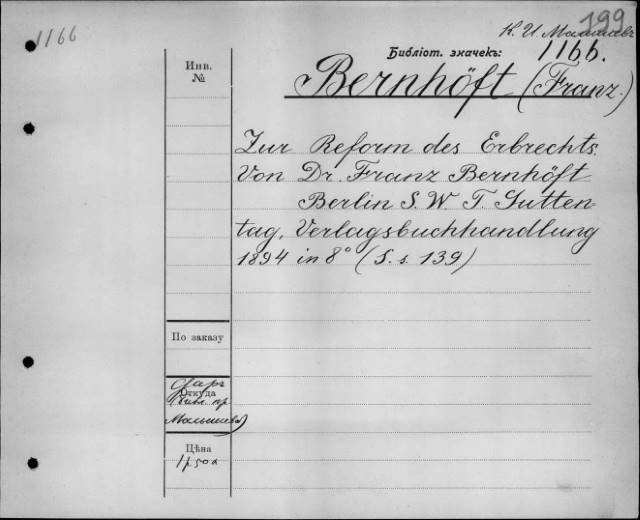 1166
199
К. И. Малышевъ
Библіот. значекъ:
1166.
Bernhöft (Franz.)
Инв.
№
Zur Reform des Erbrechts.
Von Dr. Franz Bernhöft
Berlin S. W. T. Gutten-
tag, Verlagsbuchhandlung
1894 in 8° (S. s. 139)
По заказу
Откуда
даръ
библ. пр.
Малышева)
Цѣна
1р 50к